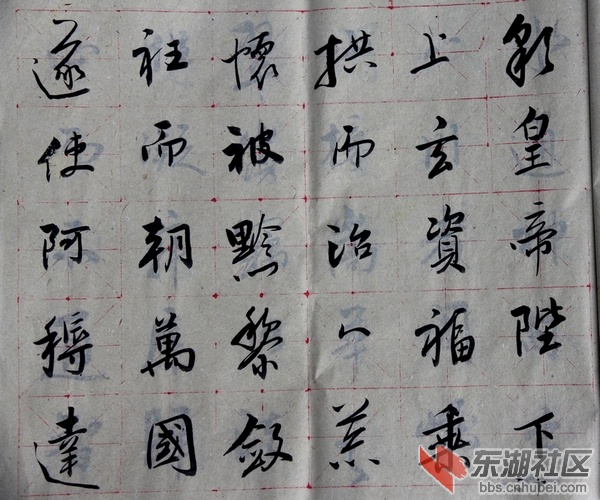 皇帝陛下
上玄資福垂
拱而治八荒
懷被黔黎斂
衽而朝萬國
遂使阿耨達
东湖社区
bbs.cnhubei.com